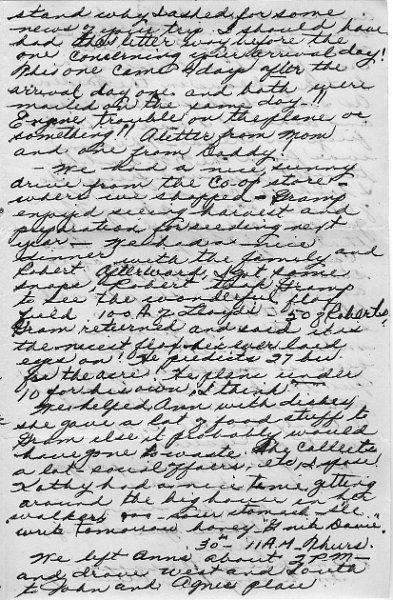 stand why I asked for some
news of your trip. I should have
had that letter way before the
one concerning your arrival day!
This one came 4 days after the
arrival day one and both were
mailed on the same day—!!
Engine trouble on the plane or
something!! A letter from Mom
and one from Daddy.
— We had a nice sunny
drive from the Co-op store—
where we shopped — Gramp
enjoyed seeing harvest and
preparation for seeding next
year — We had a nice
dinner with the family and
Robert. Afterward, I got some
snaps, Robert took Gramp
to see the wonderful flax
field. 100 A of Lloyd's — 50 of Robert's
Gram returned and said it is
the nicest flax he's ever laid
eyes on! He predicts 27 bu
for the acre! He plans under
10 for his own, I think!
We helped Ann with dishes
she gave a lot of food stuff to
Gram else it probably would
have gone to waste. She collects
a lot social affairs, etc, I suppose!
Kathy had a nice time getting
around the big house in her
walker sour stomach — see
write tomorrow honey
30th 11 A.M. Thurs.
We left Anna's about 3 P.M.
and drove west and South
to John and Agnes place